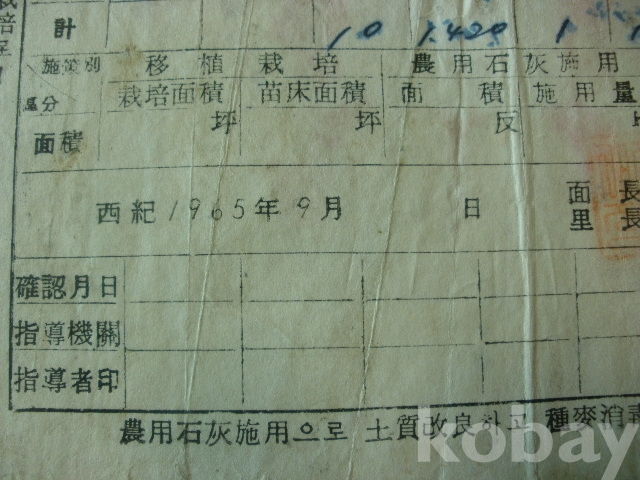 計 10 1.420 1
施策別 移植 栽培 農用石灰施用
区分 栽培面積 苗床面積 面積 施用量
面積 坪 坪 反
西紀 1965年 9月 日 面長
里長
確認月日
指導機關
指導者印
農用石灰施用으로 土質改良하고 種麥消毒
kobay